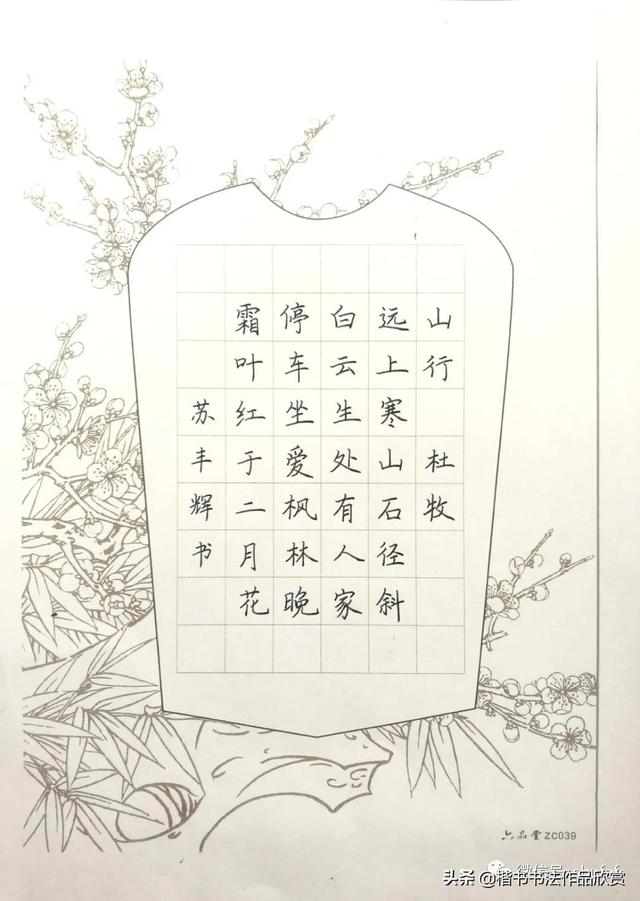 山行 杜牧
远上寒山石径斜
白云生处有人家
停车坐爱枫林晚
霜叶红于二月花
苏丰辉书
六品堂 ZC039
头条 @楷书书法作品欣赏